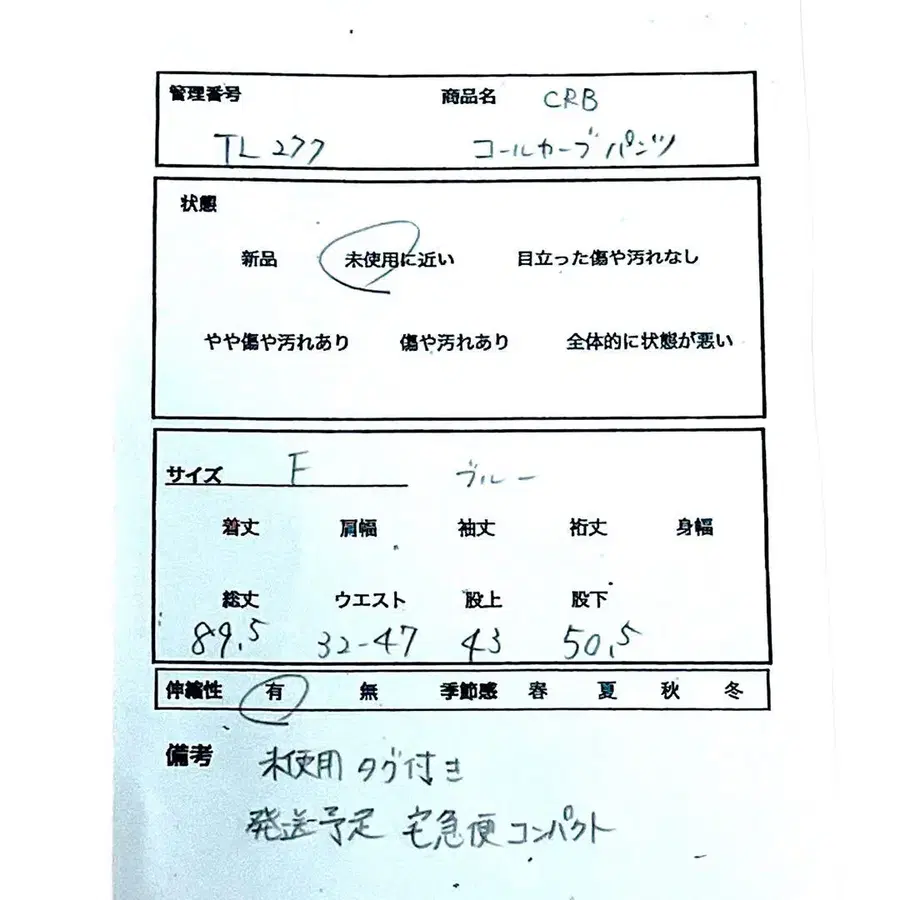 管理番号 商品名 CRB
TL277 コールカーブパンツ
状態
新品 未使用に近い 目立った傷や汚れなし
やや傷や汚れあり 傷や汚れあり 全体的に状態が悪い
サイズ F ブルー
着丈 肩幅 袖丈 裄丈 身幅
総丈 ウエスト 股上 股下
89.5 32-47 43 50.5
伸縮性 有 無 季節感 春 夏 秋 冬
備考 未使用 タグ付き
発送予定 宅急便コンパクト